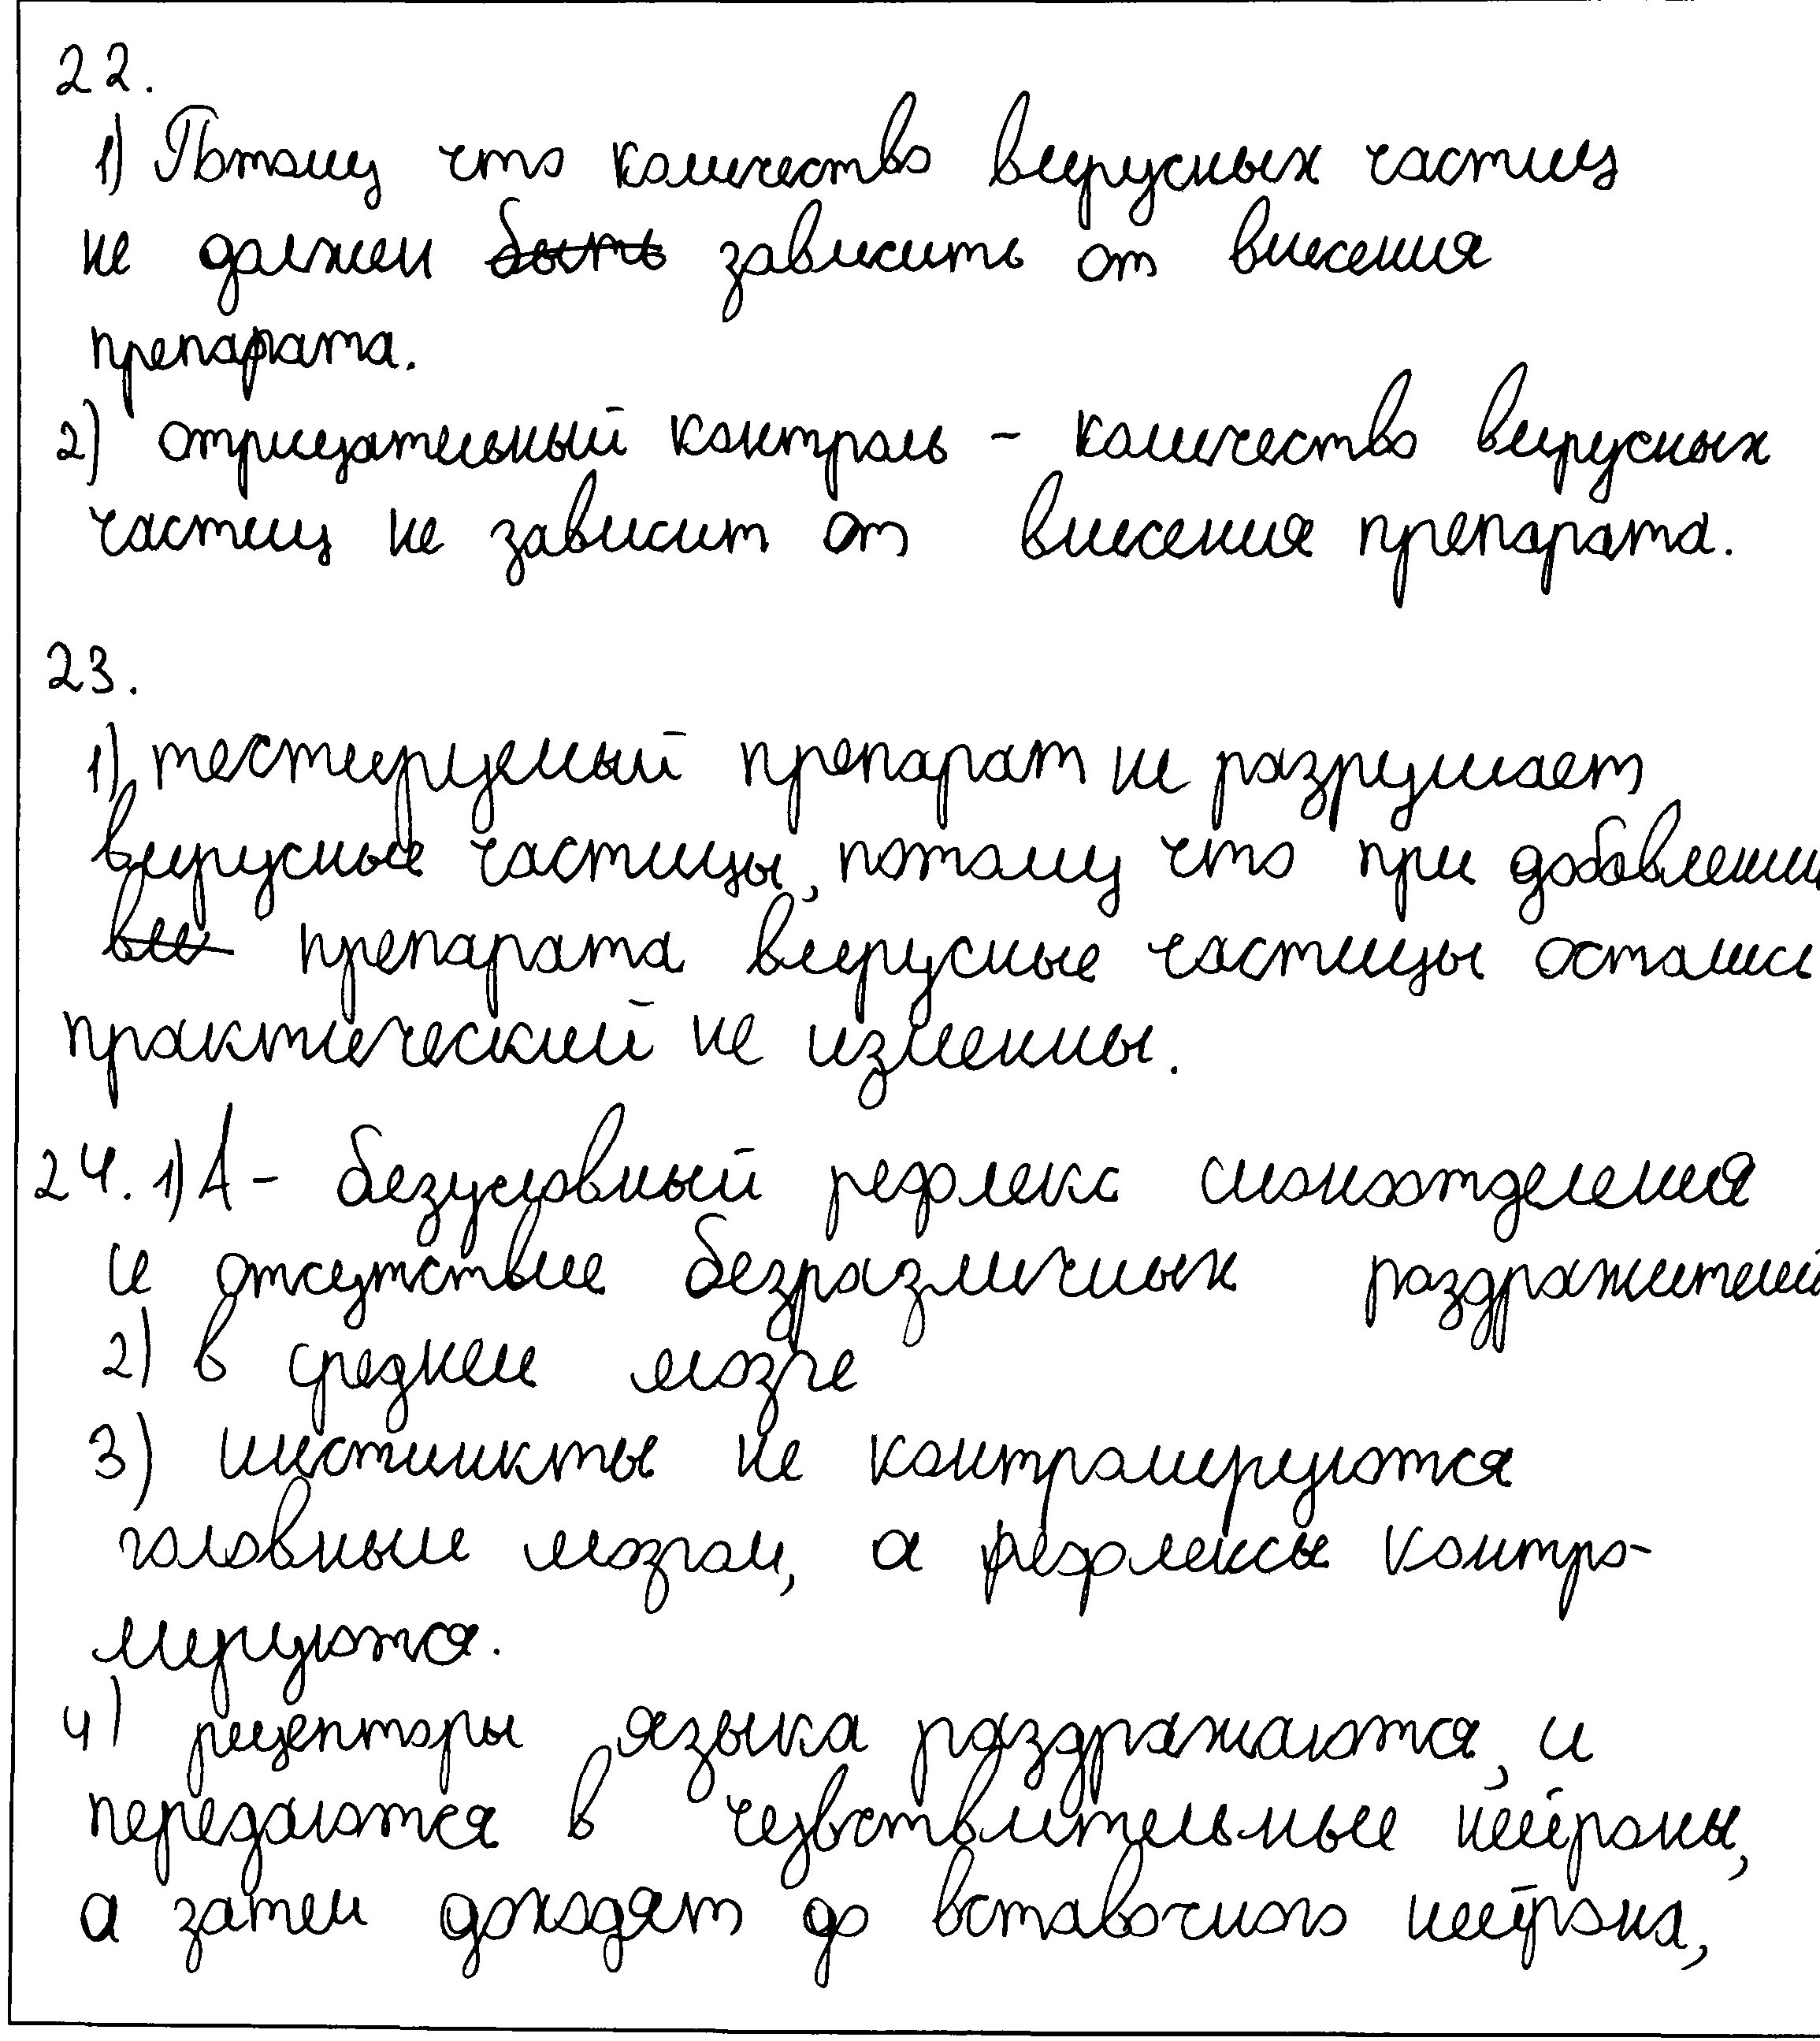 22.
1) Потому что количество вирусных частиц
не должен быть зависить от внесения
препарата.
2) отрицательный контроль - количество вирусных
частиц не зависит от внесения препарата.
23.
1) тестируемый препарат не разрушает
вирусные частицы, потому что при добавлении
вне препарата вирусные частицы остались
практический не изменны.
24. 1) А - безусловный рефлекс слюноотделения
и отсутствие безразличных раздражителей
2) в среднем мозге
3) инстинкты не контролируются
головным мозгом, а рефлексы контро-
лируются.
4) рецепторы языка раздражаются, и
передаются в чувствительные нейроны,
а затем доходят до вставочного нейрона,